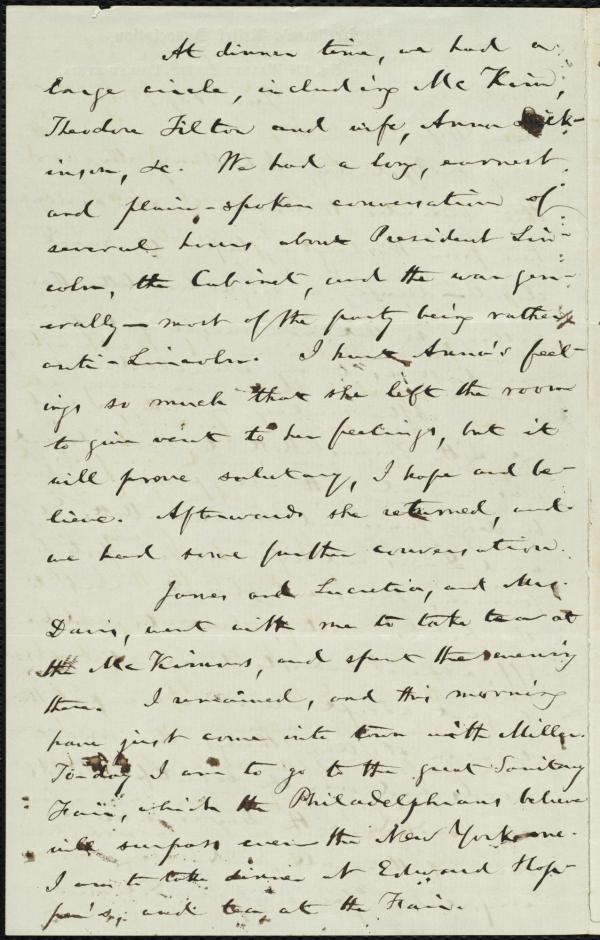 At dinner time, we had a
large circle, including McKim,
Theodore Tilton and wife, Anna Dick-
inson, &c. We had a long, earnest
and plain-spoken conversation of
several hours about President Lin-
coln, the Cabinet, and the war gen-
erally—most of the party being rather
anti-Lincoln. I hurt Anna's feel-
ings so much that she left the room
to give vent to her feelings, but it
will prove salutary, I hope and be-
lieve. Afterwards she returned, and
we had some further conversation.
James and Lucretia, and Mrs.
Davis, went with me to take tea at
the McKims, and spent the evening
there. I remained, and this morning
have just come into town with Miller.
To-day I am to go to the great Sanitary
Fair, which the Philadelphians believe
will surpass even the New York one.
I am to take dinner at Edward Hop-
per's, and tea at the Fair.